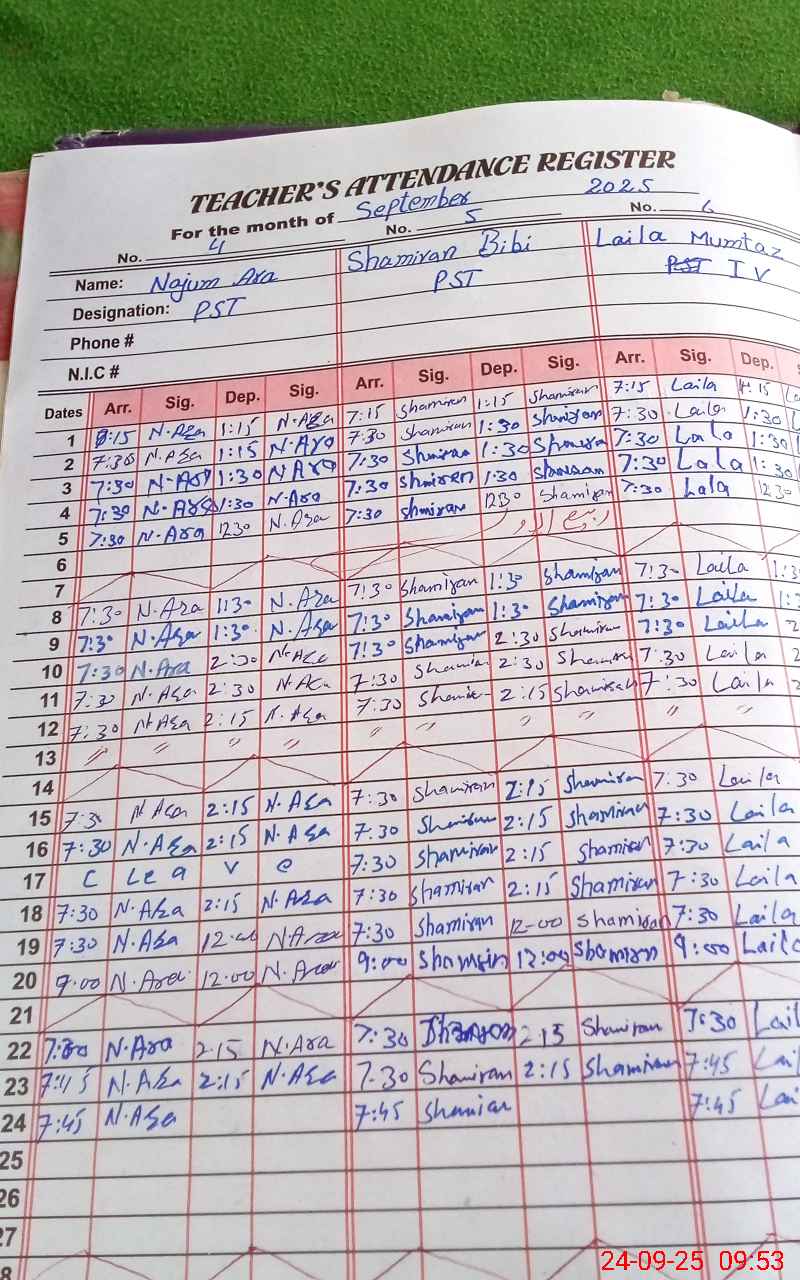 TEACHER'S ATTENDANCE REGISTER
For the month of September 2025
No. 4 No. 5 No. 6
Name: Najum Ara Shamiran Bibi Laila Mumtaz
Designation: PST PST PST IV
Phone #
N.I.C #
Dates Arr. Sig. Dep. Sig. Arr. Sig. Dep. Sig. Arr. Sig. Dep.
1 8:15 N.Aza 1:15 N.Aza 7:15 Shamiran 1:15 Shamiran 7:15 Laila 1:15
2 7:30 N.Aza 1:15 N.Aro 7:30 Shamiran 1:30 Shamiran 7:30 Laila 1:30
3 7:30 N.Ara 1:30 N.Aro 7:30 1:30 7:30 Lala 1:30
4 7:30 N.Ara 1:30 N.Ara 7:30 1:30 7:30 Lala 1:30
5 7:30 N.Ara 1230 N.Aza 7:30 1230 Shamiran 7:30 Lala 1230
6
7
8 7:30 N.Ara 1:30 N.Aza 7:30 Shamiran 1:30 Shamiran 7:30 Laila 1:3
9 7:30 N.Aza 1:30 N.Aza 7:30 Shamiran 1:30 Shamiran 7:30 Laila
10 7:30 N.Ara 2:30 N.Aza 7:30 Shamiran 2:30 Shamiran 7:30 Laila 2
11 7:30 N.Aza 2:30 N.Aza 7:30 2:30 7:30 Laila 2
12 7:30 N.Aza 2:15 N.Aza 7:30 2:15 Shamiran 7:30 Laila 2
13 〃 〃 〃 〃 〃 〃 〃 〃 〃 〃
14
15 7:30 N.Aza 2:15 N.Aza 7:30 Shamiran 2:15 Shamiran 7:30 Laila
16 7:30 N.Aza 2:15 N.Aza 7:30 Shamiran 2:15 Shamiran 7:30 Laila
17 C Leave 7:30 Shamiran 2:15 Shamiran 7:30 Laila
18 7:30 N.Aza 2:15 N.Aza 7:30 Shamiran 2:15 Shamiran 7:30 Laila
19 7:30 N.Aza 12:00 N.Ara 7:30 Shamiran 12-00 Shamiran 7:30 Laila
20 9.00 N.Ara 12.00 N.Ara 9:00 Shamsin 12:00 Shamiran 9:00 Laila
21
22 7:30 N.Ara 2.15 N.Ara 7:30 2:15 Shamiran 7:30 Lai
23 7:45 N.Aza 2:15 N.Aza 7.30 Shamiran 2:15 Shamiran 7:45 Lai
24 7:45 N.Aza 7:45 7:45 Lai
25
26
27
24-09-25 09:53